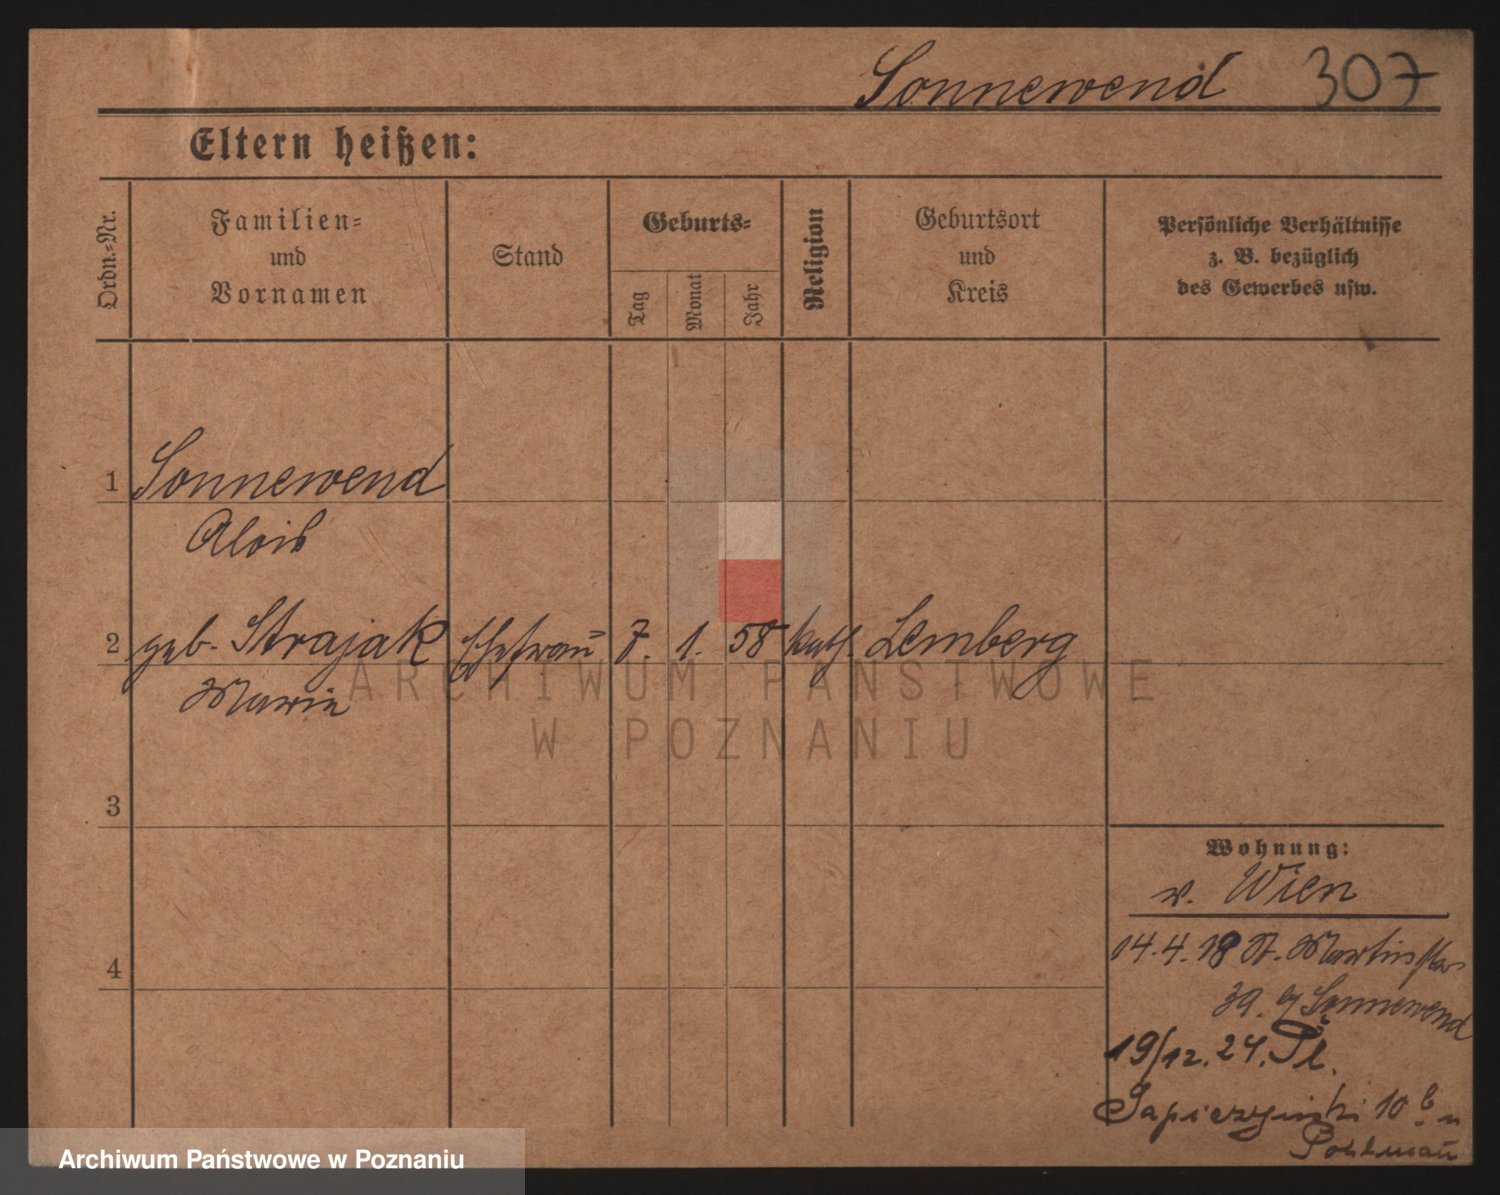 Sonnewend 307
Eltern heißen:
Ordn.-Nr.
Familien-
und
Vornamen
Stand
Geburts-
Tag
Monat
Jahr
Religion
Geburtsort
und
Kreis
Persönliche Verhältnisse
z. B. bezüglich
des Gewerbes usw.
1 Sonnewend
Alois
2 geb. Strajak Ehefrau 7. 1. 58 kath. Lemberg
Marie
3
4
Wohnung:
v. Wien
14.4.18 St. Martinstr.
39. Sonnewend
19/12.24. Pl.
Sapieżyński 10 b
Pohlmann
ARCHIWUM PAŃSTWOWE
W POZNANIU
Archiwum Państwowe w Poznaniu